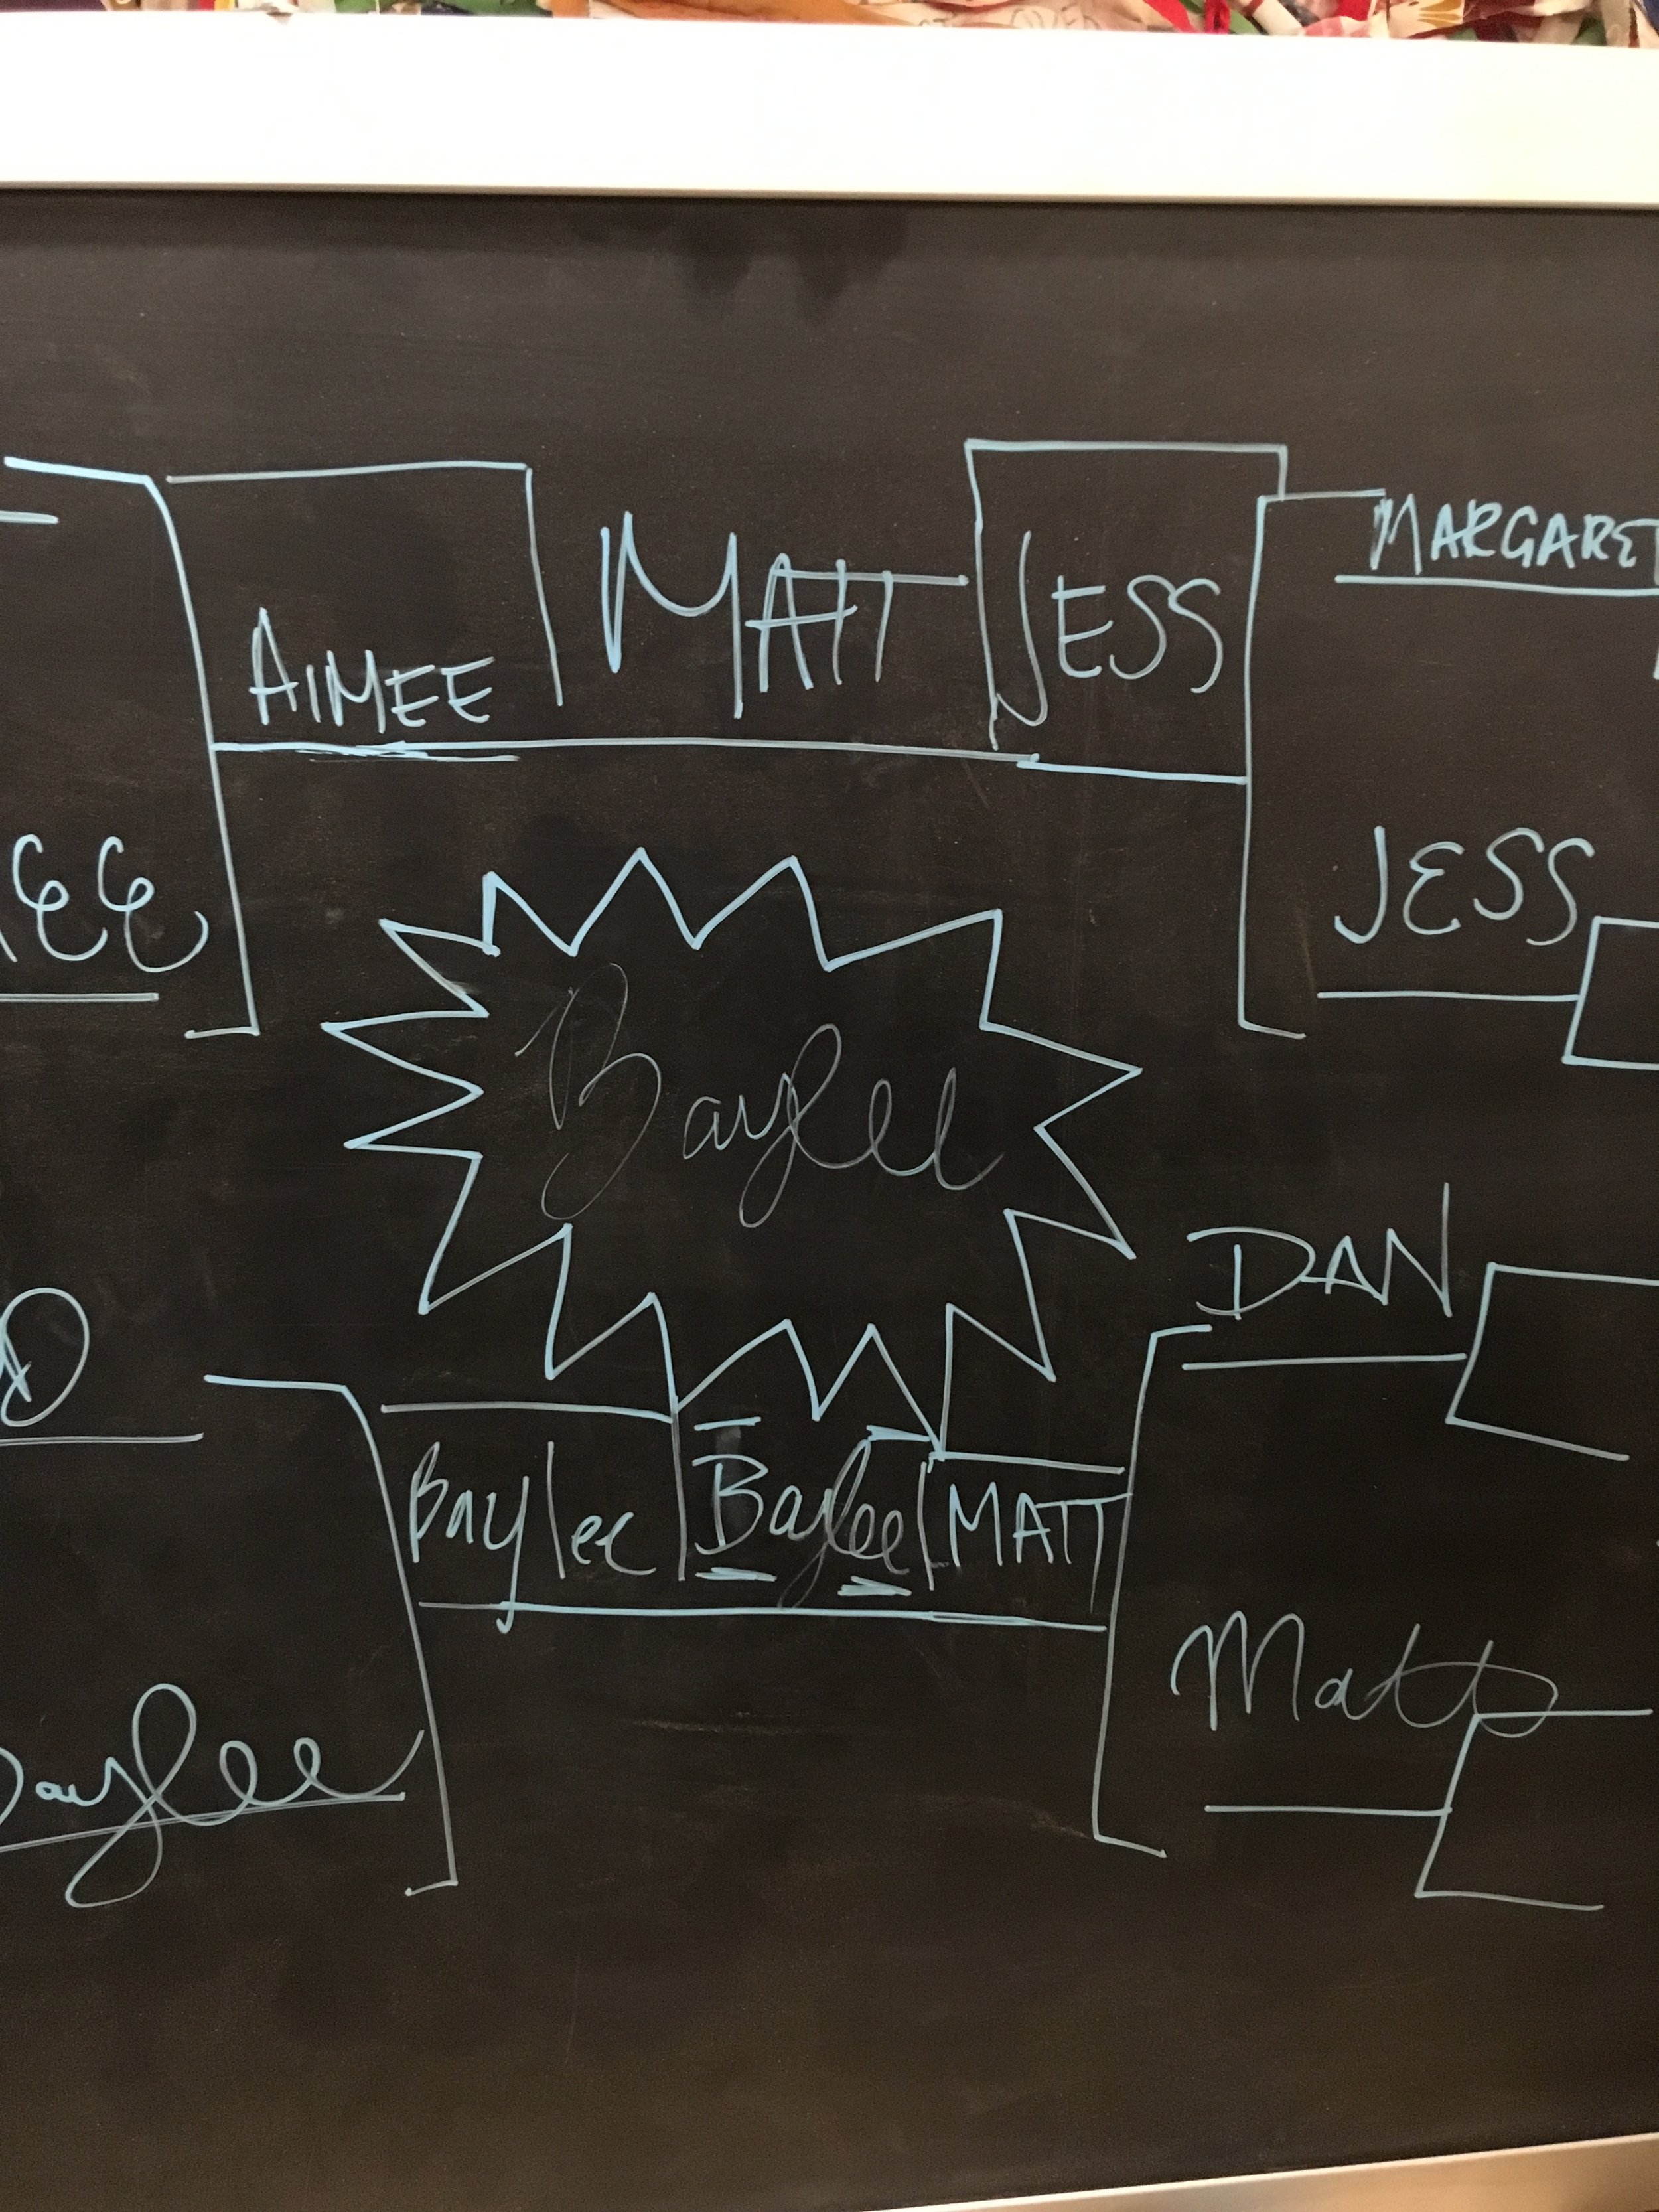 MARGARET
AIMEE MATT JESS
JESS
Baylee
DAN
Baylee Baylee MATT
Matt
Baylee